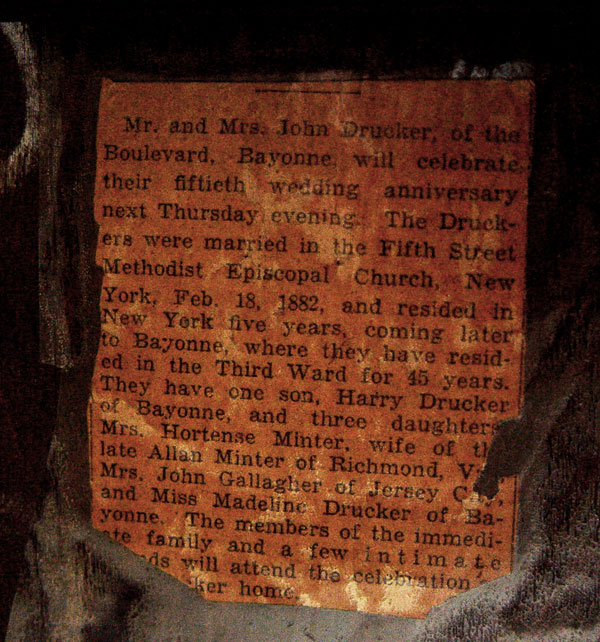 Mr. and Mrs. John Drucker, of the
Boulevard, Bayonne, will celebrate
their fiftieth wedding anniversary
next Thursday evening. The Druck-
ers were married in the Fifth Street
Methodist Episcopal Church, New
York, Feb. 18, 1882, and resided in
New York five years, coming later
to Bayonne, where they have resid-
ed in the Third Ward for 45 years.
They have one son, Harry Drucker
of Bayonne, and three daughters
Mrs. Hortense Minter, wife of th
late Allan Minter of Richmond, V
Mrs. John Gallagher of Jersey
and Miss Madeline Drucker of Ba-
yonne. The members of the immedi-
te family and a few intimate
ds will attend the celebration
ker home.